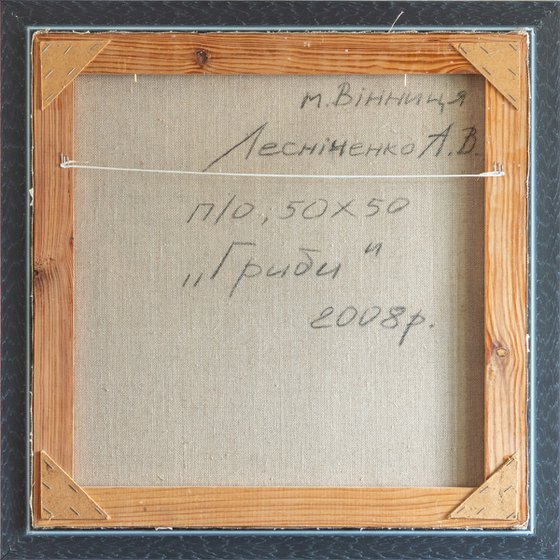 м. Вінниця
Лесніченко А.В.
п/о, 50х50
„Гриби"
2008р.